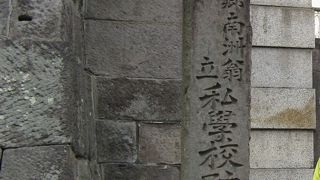 郷南洲翁
立私學校